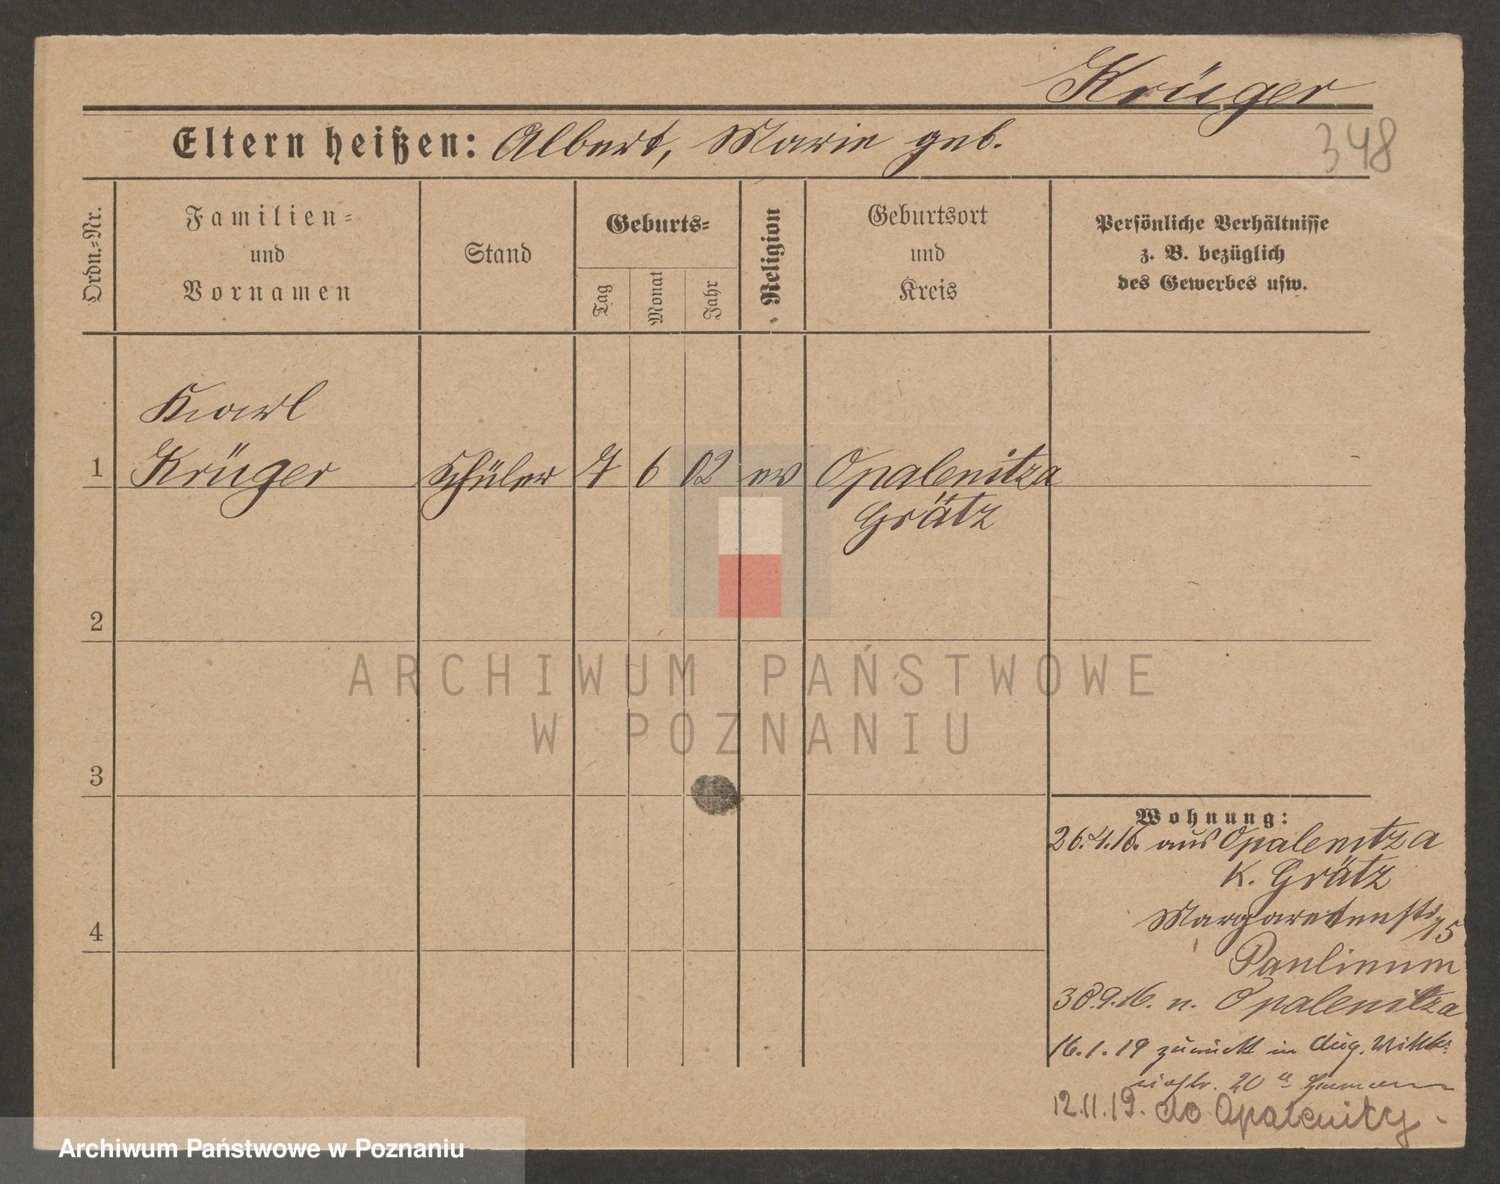 Krüger
Eltern heißen: Albert, Marie geb.
348
Ordn.-Nr.
Familien-
und
Vornamen
Stand
Geburts-
Tag
Monat
Jahr
Religion
Geburtsort
und
Kreis
Persönliche Verhältnisse
z. B. bezüglich
des Gewerbes usw.
Karl
1 Krüger Schüler 7 6 02 ev Opalenitza
Grätz
2
3
4
Wohnung:
26.4.16. aus Opalenitza
K. Grätz
Margaretenstr
Paulinum
n. Opalenitza
16.1.19 zurück in Aug. Vikt.
20
12.11.19. do Opalenicy
ARCHIWUM PAŃSTWOWE
W POZNANIU
Archiwum Państwowe w Poznaniu